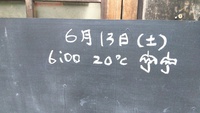 6月13日(土)
6:00 20℃